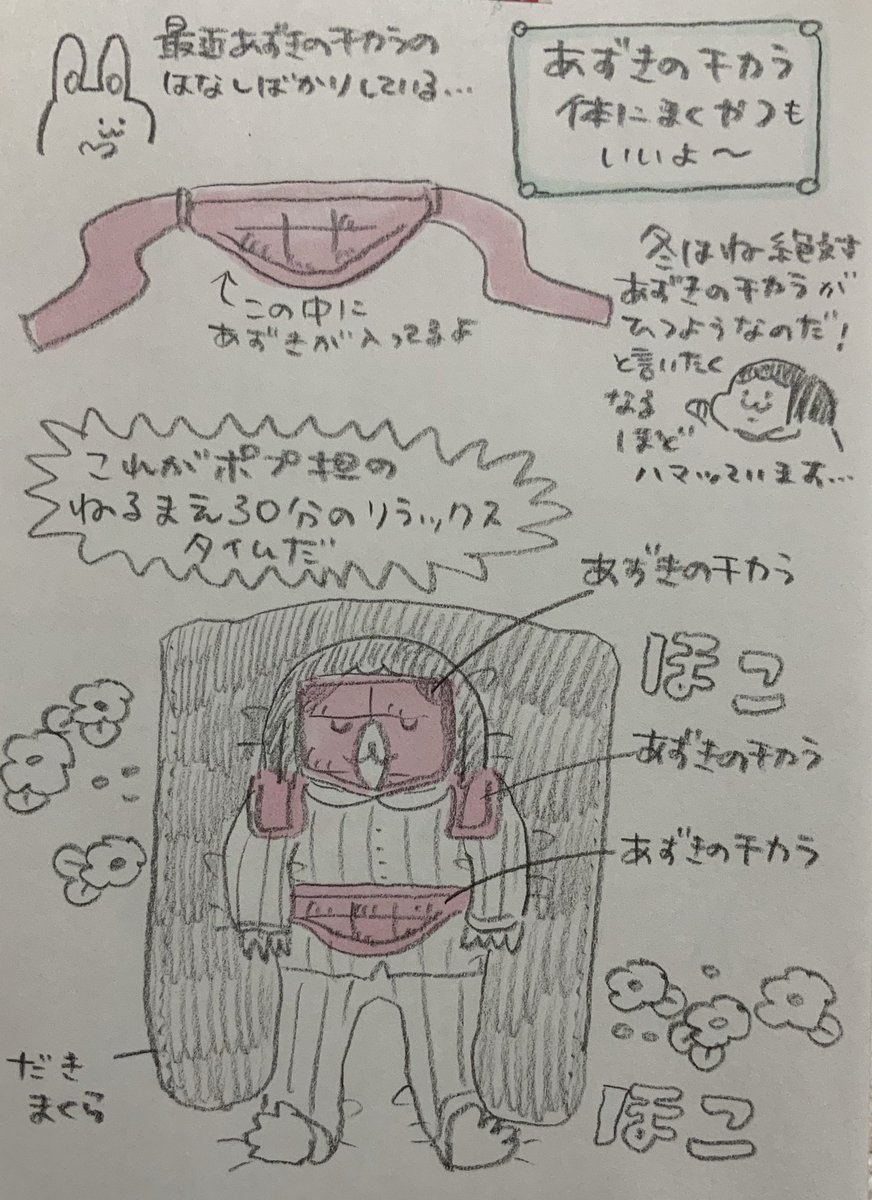 最近あずきのチカラの
はなしばかりしている…
あずきのチカラ
体にまくやつも
いいよ〜
この中に
あずきが入ってるよ
冬はね絶対
あずきのチカラが
ひつようなのだ！
と言いたく
なる
ほど
ハマッています…
これがポプ担の
ねるまえ30分のリラックス
タイムだ
あずきのチカラ
ほこ
あずきのチカラ
あずきのチカラ
だき
まくら
ほこ